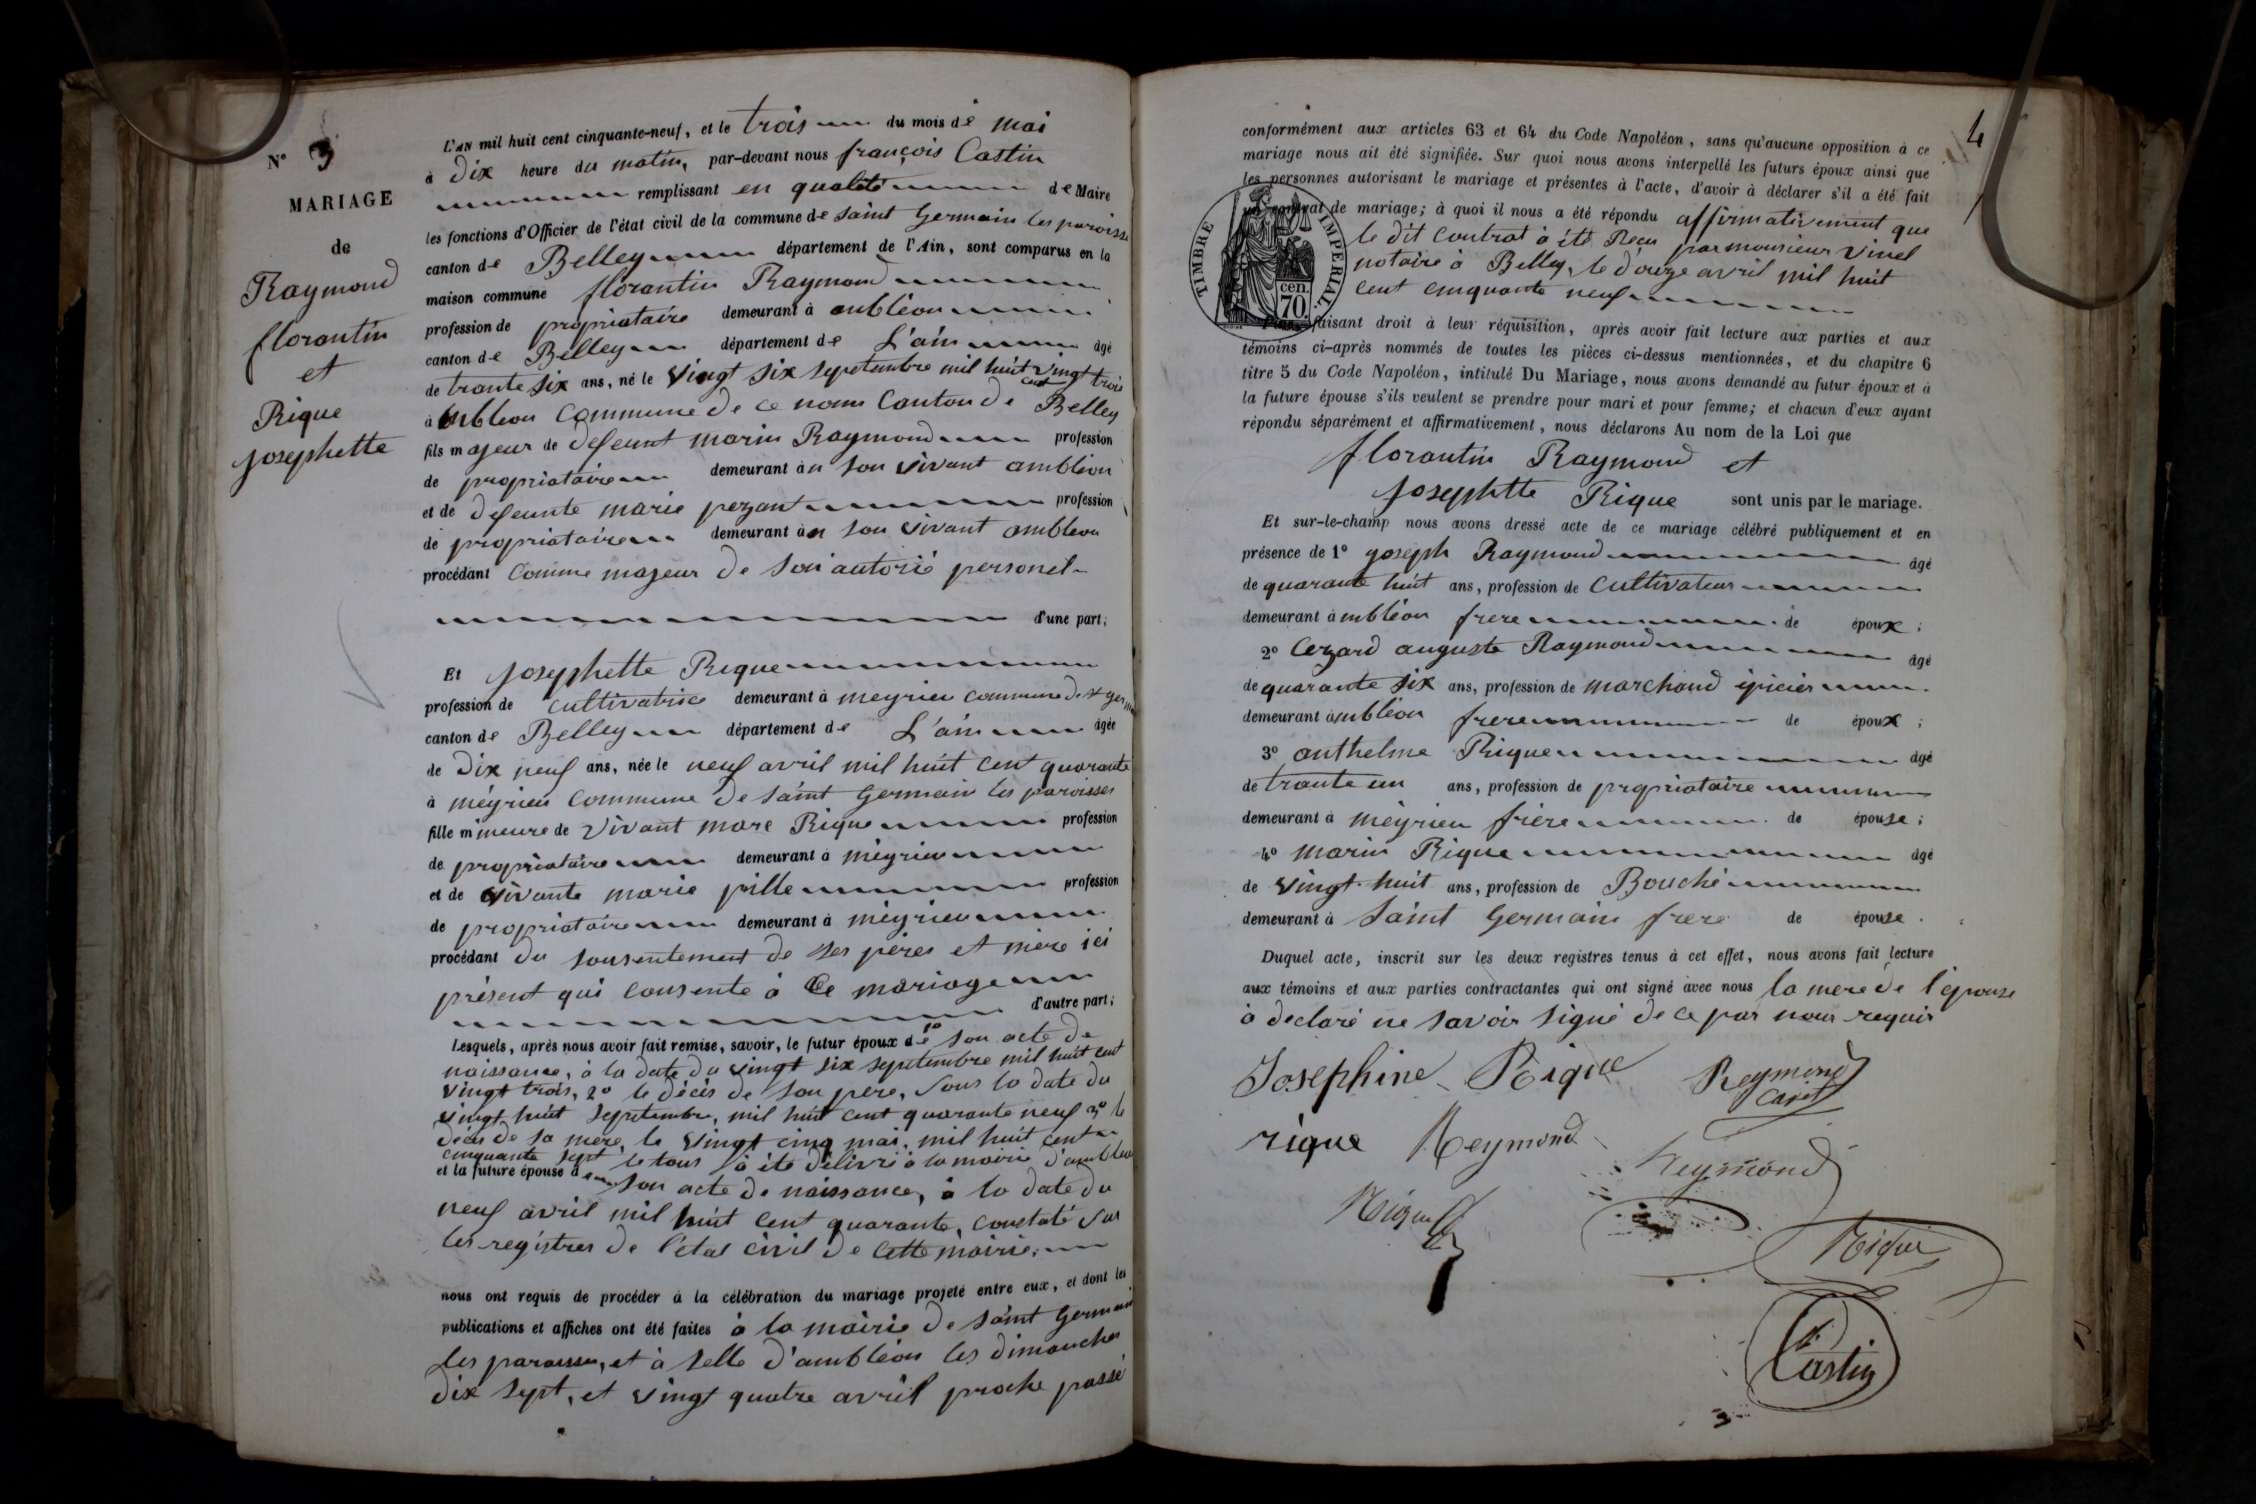 N° 3
MARIAGE
de
Raymond
florantin
et
Rique
Josephette
L'AN mil huit cent cinquante-neuf, et le trois du mois de mai
à dix heure du matin, par-devant nous françois Castin
remplissant en qualité de Maire
les fonctions d'Officier de l'état civil de la commune de saint Germain les paroisse
canton de Belley département de l'Ain, sont comparus en la
maison commune florantin Raymond
profession de propriataire demeurant à ambléon
canton de Belley département de L'ain âgé
de trante six ans, né le vingt six septembre mil huit cent vingt trois
à Ambleon commune de ce nom Canton de Belley
fils majeur de defeunt marin Raymond profession
de propriataire demeurant àn son vivant ambléon
et de defeunte marie pezant profession
de propriataire demeurant àn son vivant ambleon
procédant comme majeur de son autorié personel
d'une part;
Et Josephette Rique
profession de cultivatrice demeurant à meyrieu commune de st germ
canton de Belley département de L'ain âgée
de dix neuf ans, née le neuf avril mil huit cent quarante
à méyrieu commune de saint Germain les paroisses
fille mineure de vivant marc Rique profession
de propriataire demeurant à méyrieu
et de vivante marie pille profession
de propriataire demeurant à méyrieu
procédant du sonsentement de ses pères et mère ici
présent qui consente à ce mariage
d'autre part;
Lesquels, après nous avoir fait remise, savoir, le futur époux de 1° son acte de
naissance, à la date du vingt six septembre mil huit cent
vingt trois, 2° le décès de son père, sous la date du
vingt huit septembre, mil huit cent quarante neuf 3° le
décès de sa mère, le vingt cinq mai, mil huit cent
cinquante sept le tous à été délivré à la mairie d'ambleon
et la future épouse de son acte de naissance, à la date du
neuf avril mil huit cent quarante, constaté sur
les registres de l'état civil de cette mairie,
nous ont requis de procéder à la célébration du mariage projeté entre eux, et dont les
publications et affiches ont été faites à la mairie de saint Germain
les paroisses, et à selle d'ambléon les dimanches
dix sept, et vingt quatre avril proche passé
4
conformément aux articles 63 et 64 du Code Napoléon, sans qu'aucune opposition à ce
mariage nous ait été signifiée. Sur quoi nous avons interpellé les futurs époux ainsi que
les personnes autorisant le mariage et présentes à l'acte, d'avoir à déclarer s'il a été fait
un contrat de mariage; à quoi il nous a été répondu affirmativement que
le dit contrat à été Reçu par monsieur vinel
notaire à Belley, le douze avril mil huit
cent cinquante neuf
TIMBRE IMPERIAL.
cen.
70.
faisant droit à leur réquisition, après avoir fait lecture aux parties et aux
témoins ci-après nommés de toutes les pièces ci-dessus mentionnées, et du chapitre 6
titre 5 du Code Napoléon, intitulé Du Mariage, nous avons demandé au futur époux et à
la future épouse s'ils veulent se prendre pour mari et pour femme; et chacun d'eux ayant
répondu séparément et affirmativement, nous déclarons Au nom de la Loi que
florantin Raymond et
Josephtte Rique sont unis par le mariage.
Et sur-le-champ nous avons dressé acte de ce mariage célébré publiquement et en
présence de 1° joseph Raymond âgé
de quarante huit ans, profession de cultivateur
demeurant àmbléon frere de époux;
2° Cezard auguste Raymond âgé
de quarante six ans, profession de marchand épicier
demeurant àmbléon frere de époux;
3° anthelme Rique âgé
de trante un ans, profession de propriataire
demeurant à méyrieu frère de épouse;
4° marin Rique âgé
de vingt huit ans, profession de Bouché
demeurant à saint Germain frere de épouse.
Duquel acte, inscrit sur les deux registres tenus à cet effet, nous avons fait lecture
aux témoins et aux parties contractantes qui ont signé avec nous la mere de l'épouse
à déclaré ne savoir signé de ce par nous requis
Josephine Rique Reymond
rique Reymond Reymond
Rique
Rique
Castin